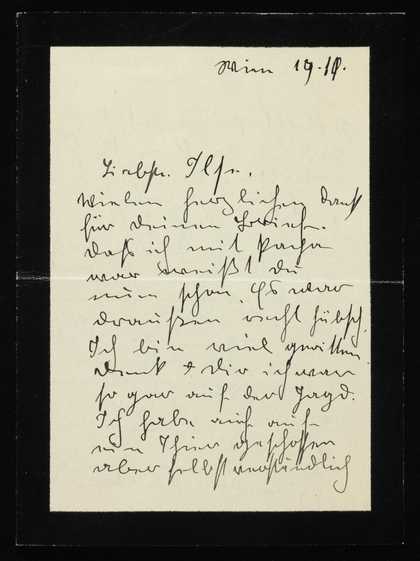 Wien 19.10.
Liebste Ilse,
Vielen herzlichen Dank
für deinen Brief.
Daß ich mit Papa
war weißt du
nun schon. Es war
draußen recht hübsch.
Ich bin viel geritten
denk Dir ich war
sogar auf der Jagd.
Ich habe auch auf
ein Thier geschossen
aber selbstverständlich